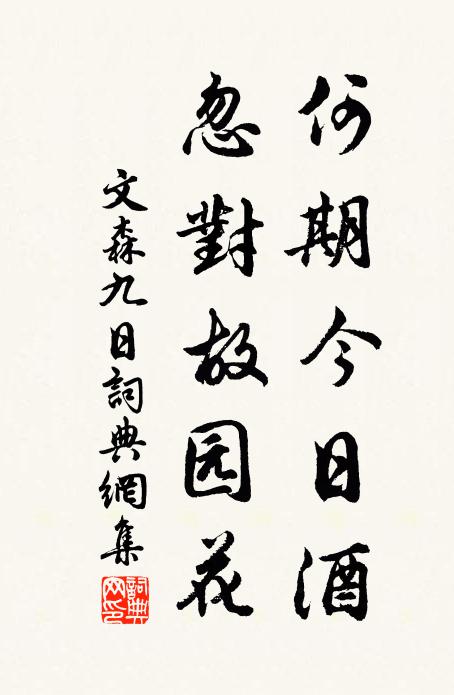 何期今日酒
忽對故园花
文森九日詞典網集
詞典
网印